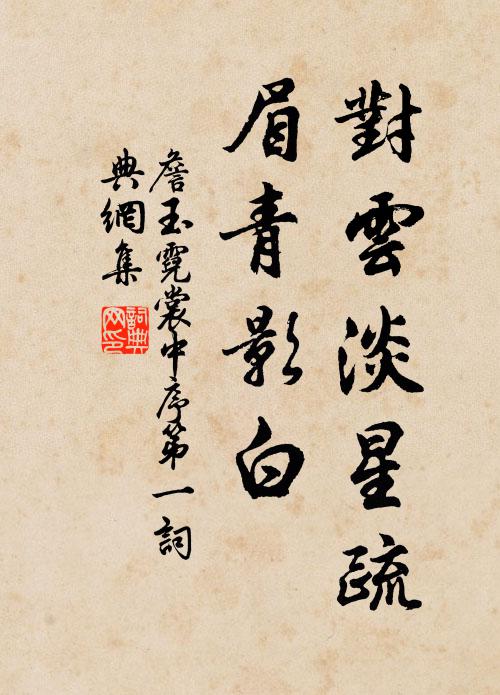 對雲淡星疏
眉青影白
詹玉霓裳中序第一詞
典網集
詞典
网印